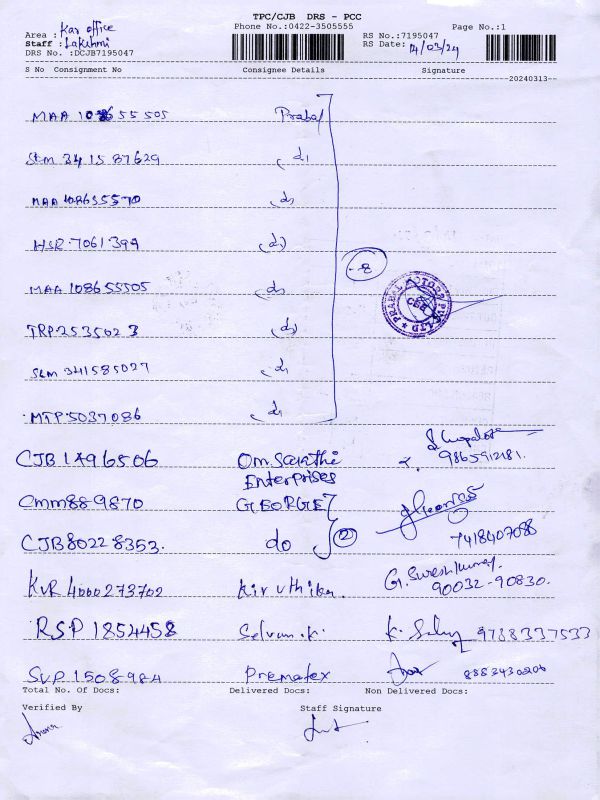 TPC/CJB DRS - PCC
Phone No.:0422-3505555
Page No.:1
Area : Kar office
Staff : Lakshmi
DRS No. :DCJB7195047
RS No.:7195047
RS Date: 14/03/24
S No Consignment No Consignee Details Signature
20240313
MAA 108655505 Prabal
Slm 341587629 do
MAA 108655570 do
HSR 7061394 do
-8
MAA 108655505 do
PRABAL MOTORS PVT LTD
TRP 2535023 do
SLM 341585027 do
MTP 5037086 do
CJB 1496506 Om Sarathi 9865912181.
Enterprises
CMM889870 GEORGE
CJB80228353. do 2 7418407088
KVR 4000273702 Kiruthika G. Sureshkumar
90032-90830.
RSP 1854458 Selvan.K 9788337533
SVP 1508984 Prematex 8883430206
Total No. Of Docs: Delivered Docs: Non Delivered Docs:
Verified By Staff Signature